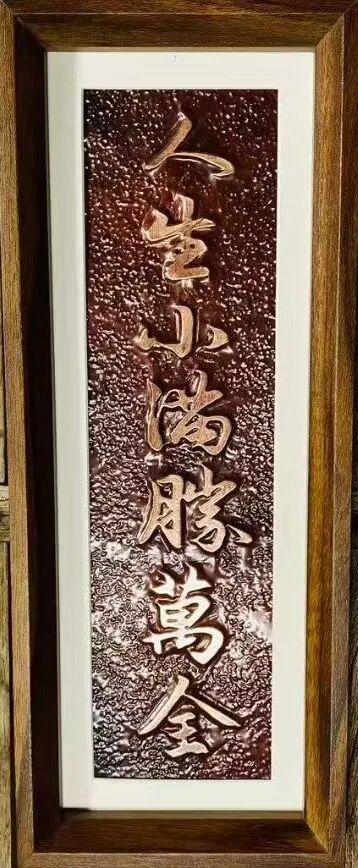 人生小滿勝萬全